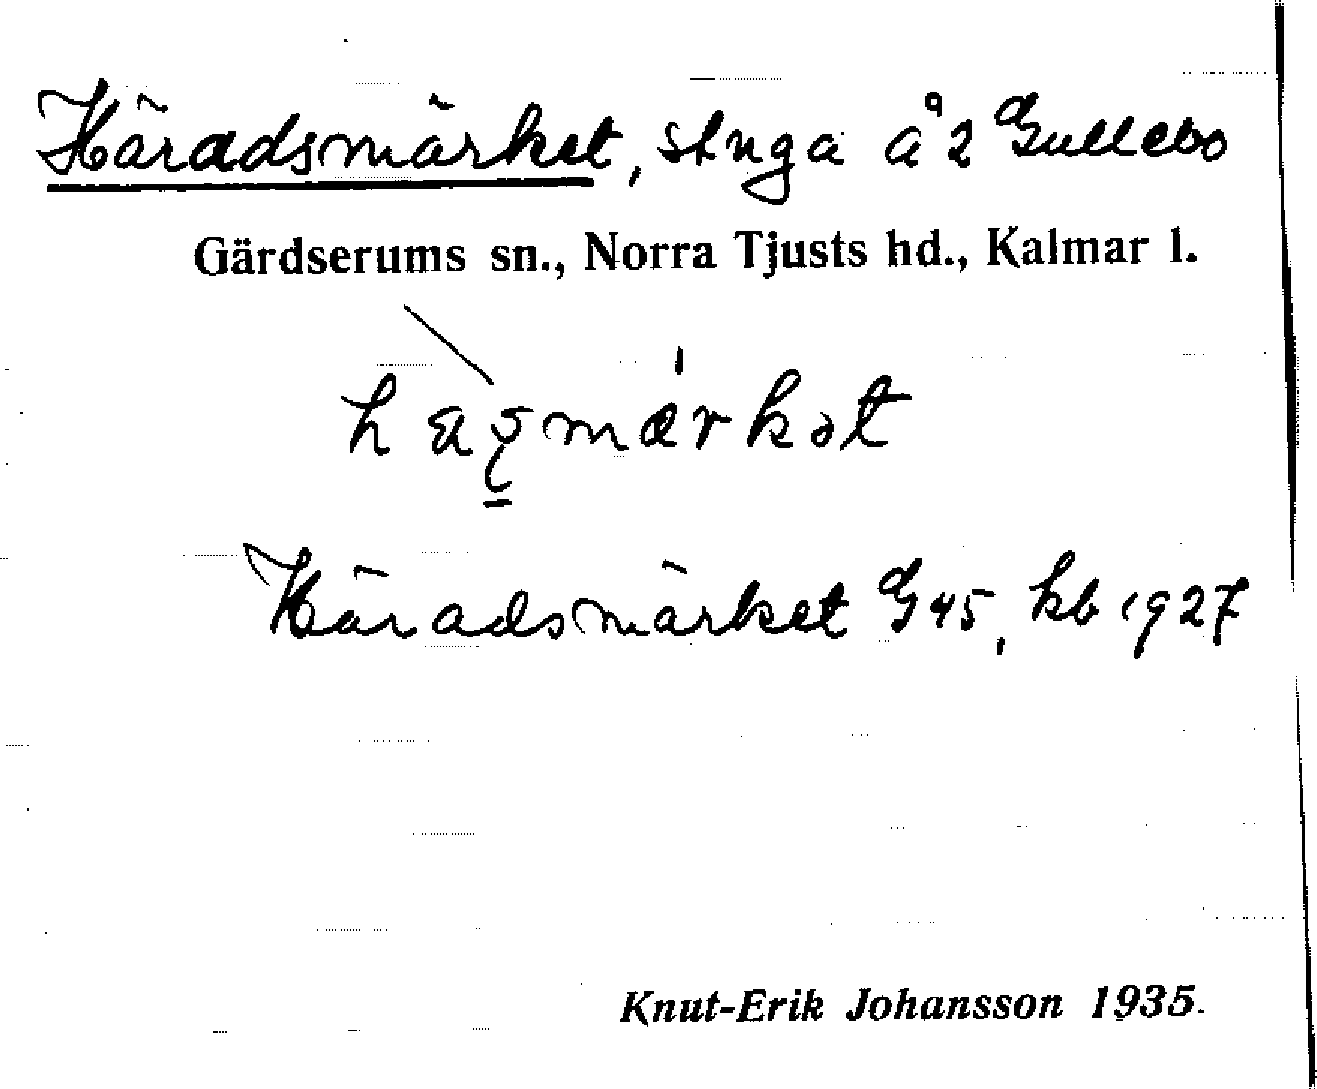 Häradsmärket, stuga å 2 Gullebo
Gärdserums sn., Norra Tjusts hd., Kalmar l.
Häradsmärket G 45, kb 1927
Knut-Erik Johansson 1935.